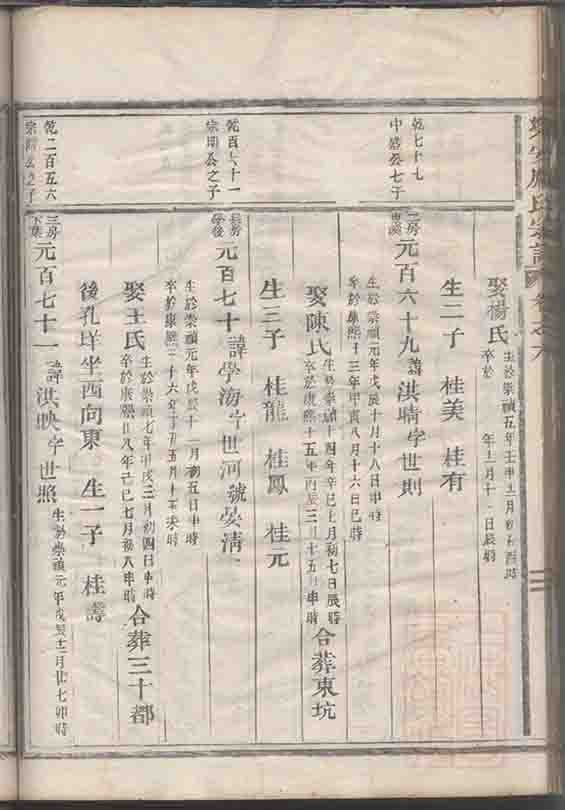 娶楊氏 生於崇禎五年壬申 月初 酉時
卒於 年 月十 日辰時
生二子 桂美 桂有
乾七十七
中 公七子
二房
元百六十九 諱洪晴字世則
生於崇禎元年戊辰十月十八日辰時
卒於康熙十三年甲寅八月十六日巳時
娶陳氏 生於崇禎十四年辛巳七月初七日辰時
卒於康熙十五年丙辰三月十五日申時
合葬東坑
生三子 桂龍 桂鳳 桂元
乾百六十一
宗明公之子
長房
學後
元百七十 諱學海字世河號晏清
生於崇禎元年戊辰十一月初五日申時
卒於康熙三十六年丁丑五月十 未時
娶王氏 生於崇禎七年甲戌三月初四日申時
卒於康熙廿八年己巳七月初八申時
合葬三十都
後孔垟坐西向東 生一子 桂壽
乾二百五六
宗 公之子
三房
下 
元百七十一 諱洪映字世照
生於崇禎元年戊辰十二月廿七卯時
氏宗譜 卷之六